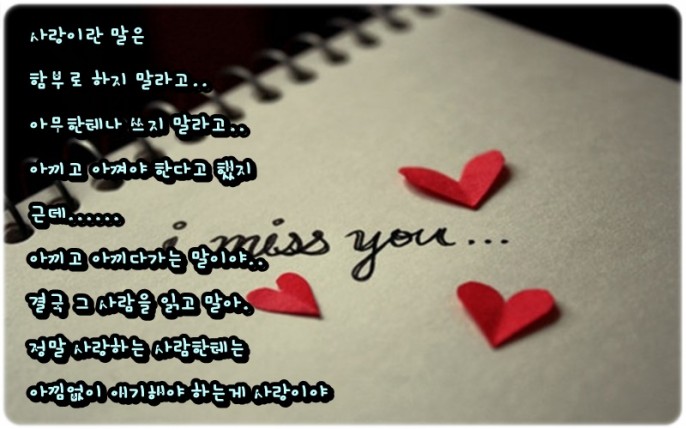 사랑이란 말은
함부로 하지 말라고..
아무한테나 쓰지 말라고..
아끼고 아껴야 한다고 했지
근데......
i miss you...
아끼고 아끼다가는 말이야..
결국 그 사람을 잃고 말아.
정말 사랑하는 사람한테는
아낌없이 얘기해야 하는게 사랑이야